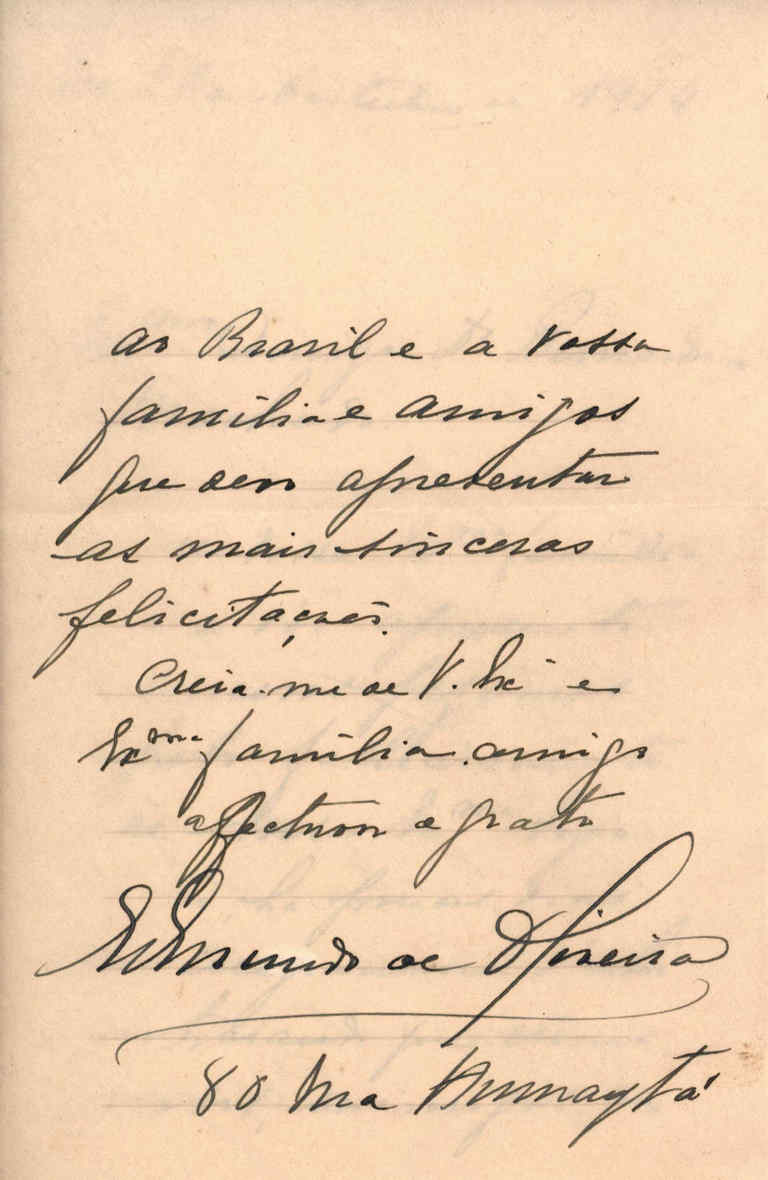 ao Brasil e a Vossa
familia e amigos
que devo apresentar
as mais sinceras
felicitações.
Creia-me de V. Exª e
Exma familia, amigo
affectuoso e grato
Edmundo de Oliveira
80 Rua Humaytá